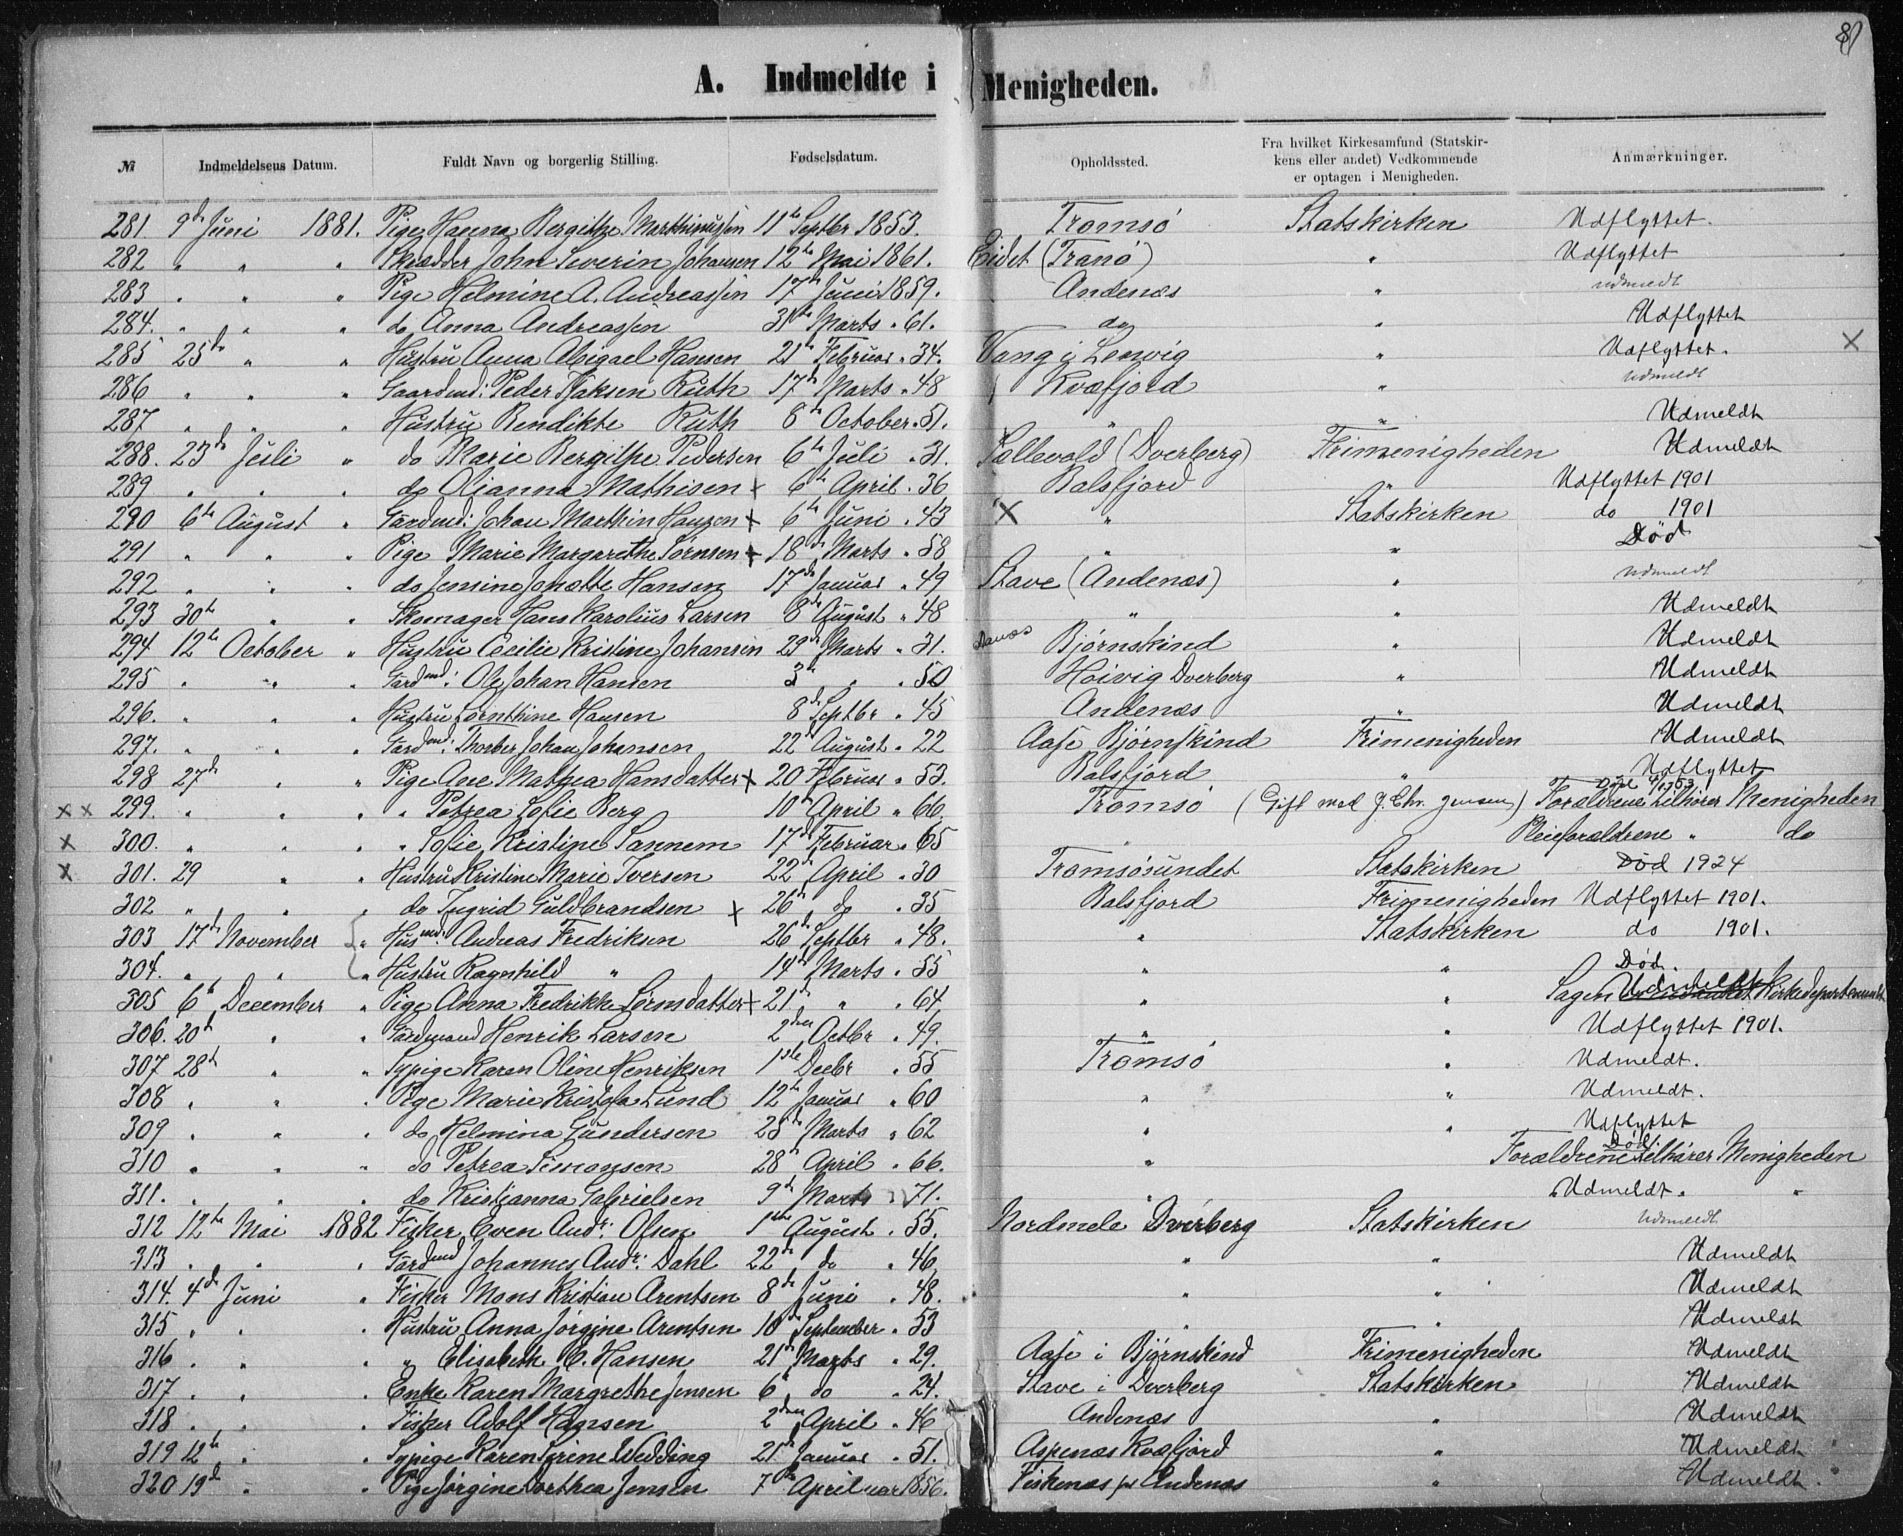 8
A. Indmeldte i Menigheden.
№ Indmeldelsens Datum. Fuldt Navn og borgerlig Stilling. Fødselsdatum. Opholdssted. Fra hvilket Kirkesamfund (Statskirkens eller andet) Vedkommende er optagen i Menigheden. Anmærkninger.
281. 9de Juni 1881. Pige Hanna Bergithe Marthinussen 11te Septbr 1853. Tromsø Statskirken Udflyttet.
282 " " " Skrædder John Severin Johansen 12te Mai 1861. Eidet (Tranø) " Udflyttet
283 " " " Pige Helmine A. Andreassen 17de Juni 1859. Andenæs " udmeldt
284. " " " do Anna Andreassen 31te Marts " 61. do " Udflyttet
285 25de " " Hustru Anna Abigael Hansen 21de Februar " 34. Vang i Lenvig " Udflyttet. X
286 " " " Gaardmd: Peder Isaksen Ruth 17de Marts " 48 Kvæfjord " Udmeldt
287 " " " Hustru Bendikte Ruth 8de October " 51. " " Udmeldt
288. 23de Juli " do Marie Bergithe Pedersen 6te Juli " 31. Sellevold (Dverberg) Frimenigheden Udmeldt
289 " " " do Olianna Mathisen x 6te April " 36 Balsfjord " Udflyttet 1901
290 6te August " Gårdmd: Johan Marthin Hansen x 6te Juni " 43 X " Statskirken do 1901
291 " " " Pige Marie Margarethe Sørnsen x 18de Marts " 58 " " Død
292 " " " do Jensine Jonette Hansen 17de Januar " 49 Stave (Andenæs) " Udmeldt
293 30te " " Skomager Hans Karolius Larsen 8de August " 48 " " Udmeldt
294 12te October " Hustru Cecilie Kristine Johansen 29de Marts " 31. Bjørnskind " Udmeldt
295 " " " Gårdmd: Ole Johan Hansen 3de " " 50 Høivig Dverberg " Udmeldt
296. " " " Hustru Lornthine Hansen 8de Septbr " 45 Andenæs " Udmeldt
297. " " " Gårdmd: Thorber Johan Johansen 22de August " 22 Aase Bjørnskind Frimenigheden Udmeldt
298 27de " " Pige Ane Mathea Hansdatter x 20 Februar " 53. Balsfjord " Udflyttet
x x 299. " " " " Petrea Sofie Berg 10de April " 66. Tromsø (Gift med J. Chr. Jensen) Forældrene tilhører Menigheden
x 300. " " " " Sofie Kristine Sannem 17de Februar " 65 " Pleieforældrene " do
x 301. 29 " " Hustru Kristine Marie Iversen 22de April " 30 Tromsøsundet Statskirken Død 1924
302 " " " do Ingrid Guldbrandsen x 26de do " 35 Balsfjord Frimenigheden Udflyttet 1901.
303 17de November " Husmd: Andreas Fredriksen 26de Septbr " 48. " Statskirken do 1901.
304. " " " Hustru Ragnhild " 14de Marts " 55 " " Død.
305 6te December " Pige Anna Fredrikke Sørnsdatter x 21de " " 64 " " Sagen Udmeldt Kirkedepartementet
306. 20de " " Gårdmand Henrik Larsen 2den Octbr " 49. " " Udflyttet 1901.
307 28de " " Sypige Karen Oline Henriksen 1ste Decbr " 55 Tromsø " Udmeldt.
308 " " " Pige Marie Kristofa Lund 12te Januar " 60 " " Udmeldt.
309 " " " do Helmina Gundersen 25de Marts " 62 " " Udflyttet
310 " " " do Petrea Simonsen 28de April " 66. " Død Forældrene tilhører Menigheden
311. " " " do Kristianna Gabrielsen 9de Marts " 71. " Udmeldt. "
312 12te Mai 1882 Fisker Even Andr: Olsen 1ste August " 55. Nordmele Dverberg Statskirken Udmeldt
313. " " " Gårdmd Johannes Andr: Dahl 22de do " 46. " " Udmeldt
314. 4de Juni " Fisker Mons Kristian Arentsen 8de Juni " 48. " " Udmeldt
315 " " " Hustru Anna Jørgine Arentsen 10de September " 53 " " Udmeldt
316 " " " " Elisabeth M. Hansen 21de Marts " 29. Aase i Bjørnskind Frimenigheden Udmeldt
317. " " " Enke Karen Margrethe Jensen 6te do " 24. Stave i Dverberg Statskirken Udmeldt
318 " " " Fisker Adolf Hansen 2den April " 46 Andenæs " Udmeldt
319 12te " " Sypige Karen Serine Wedding 21de Januar " 51. Aspenæs Kvæfjord " Udmeldt
320 19de " " Pige Jørgine Dorthea Jensen 7de April 1856. Fiskenæs pr Andenæs " Udmeldt